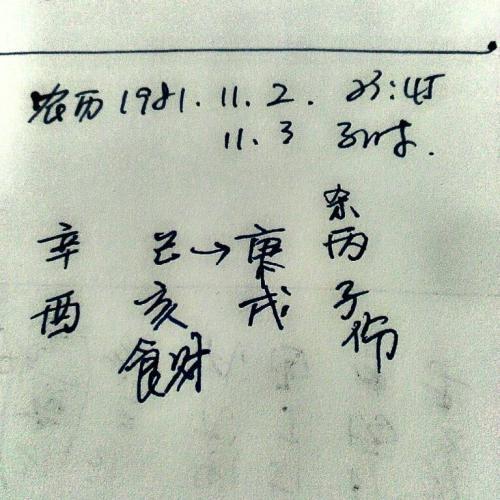 农历1981.11.2. 23:45
11.3 子时.
杀
辛 己→庚 丙
酉 亥 戌 子
食财 伤